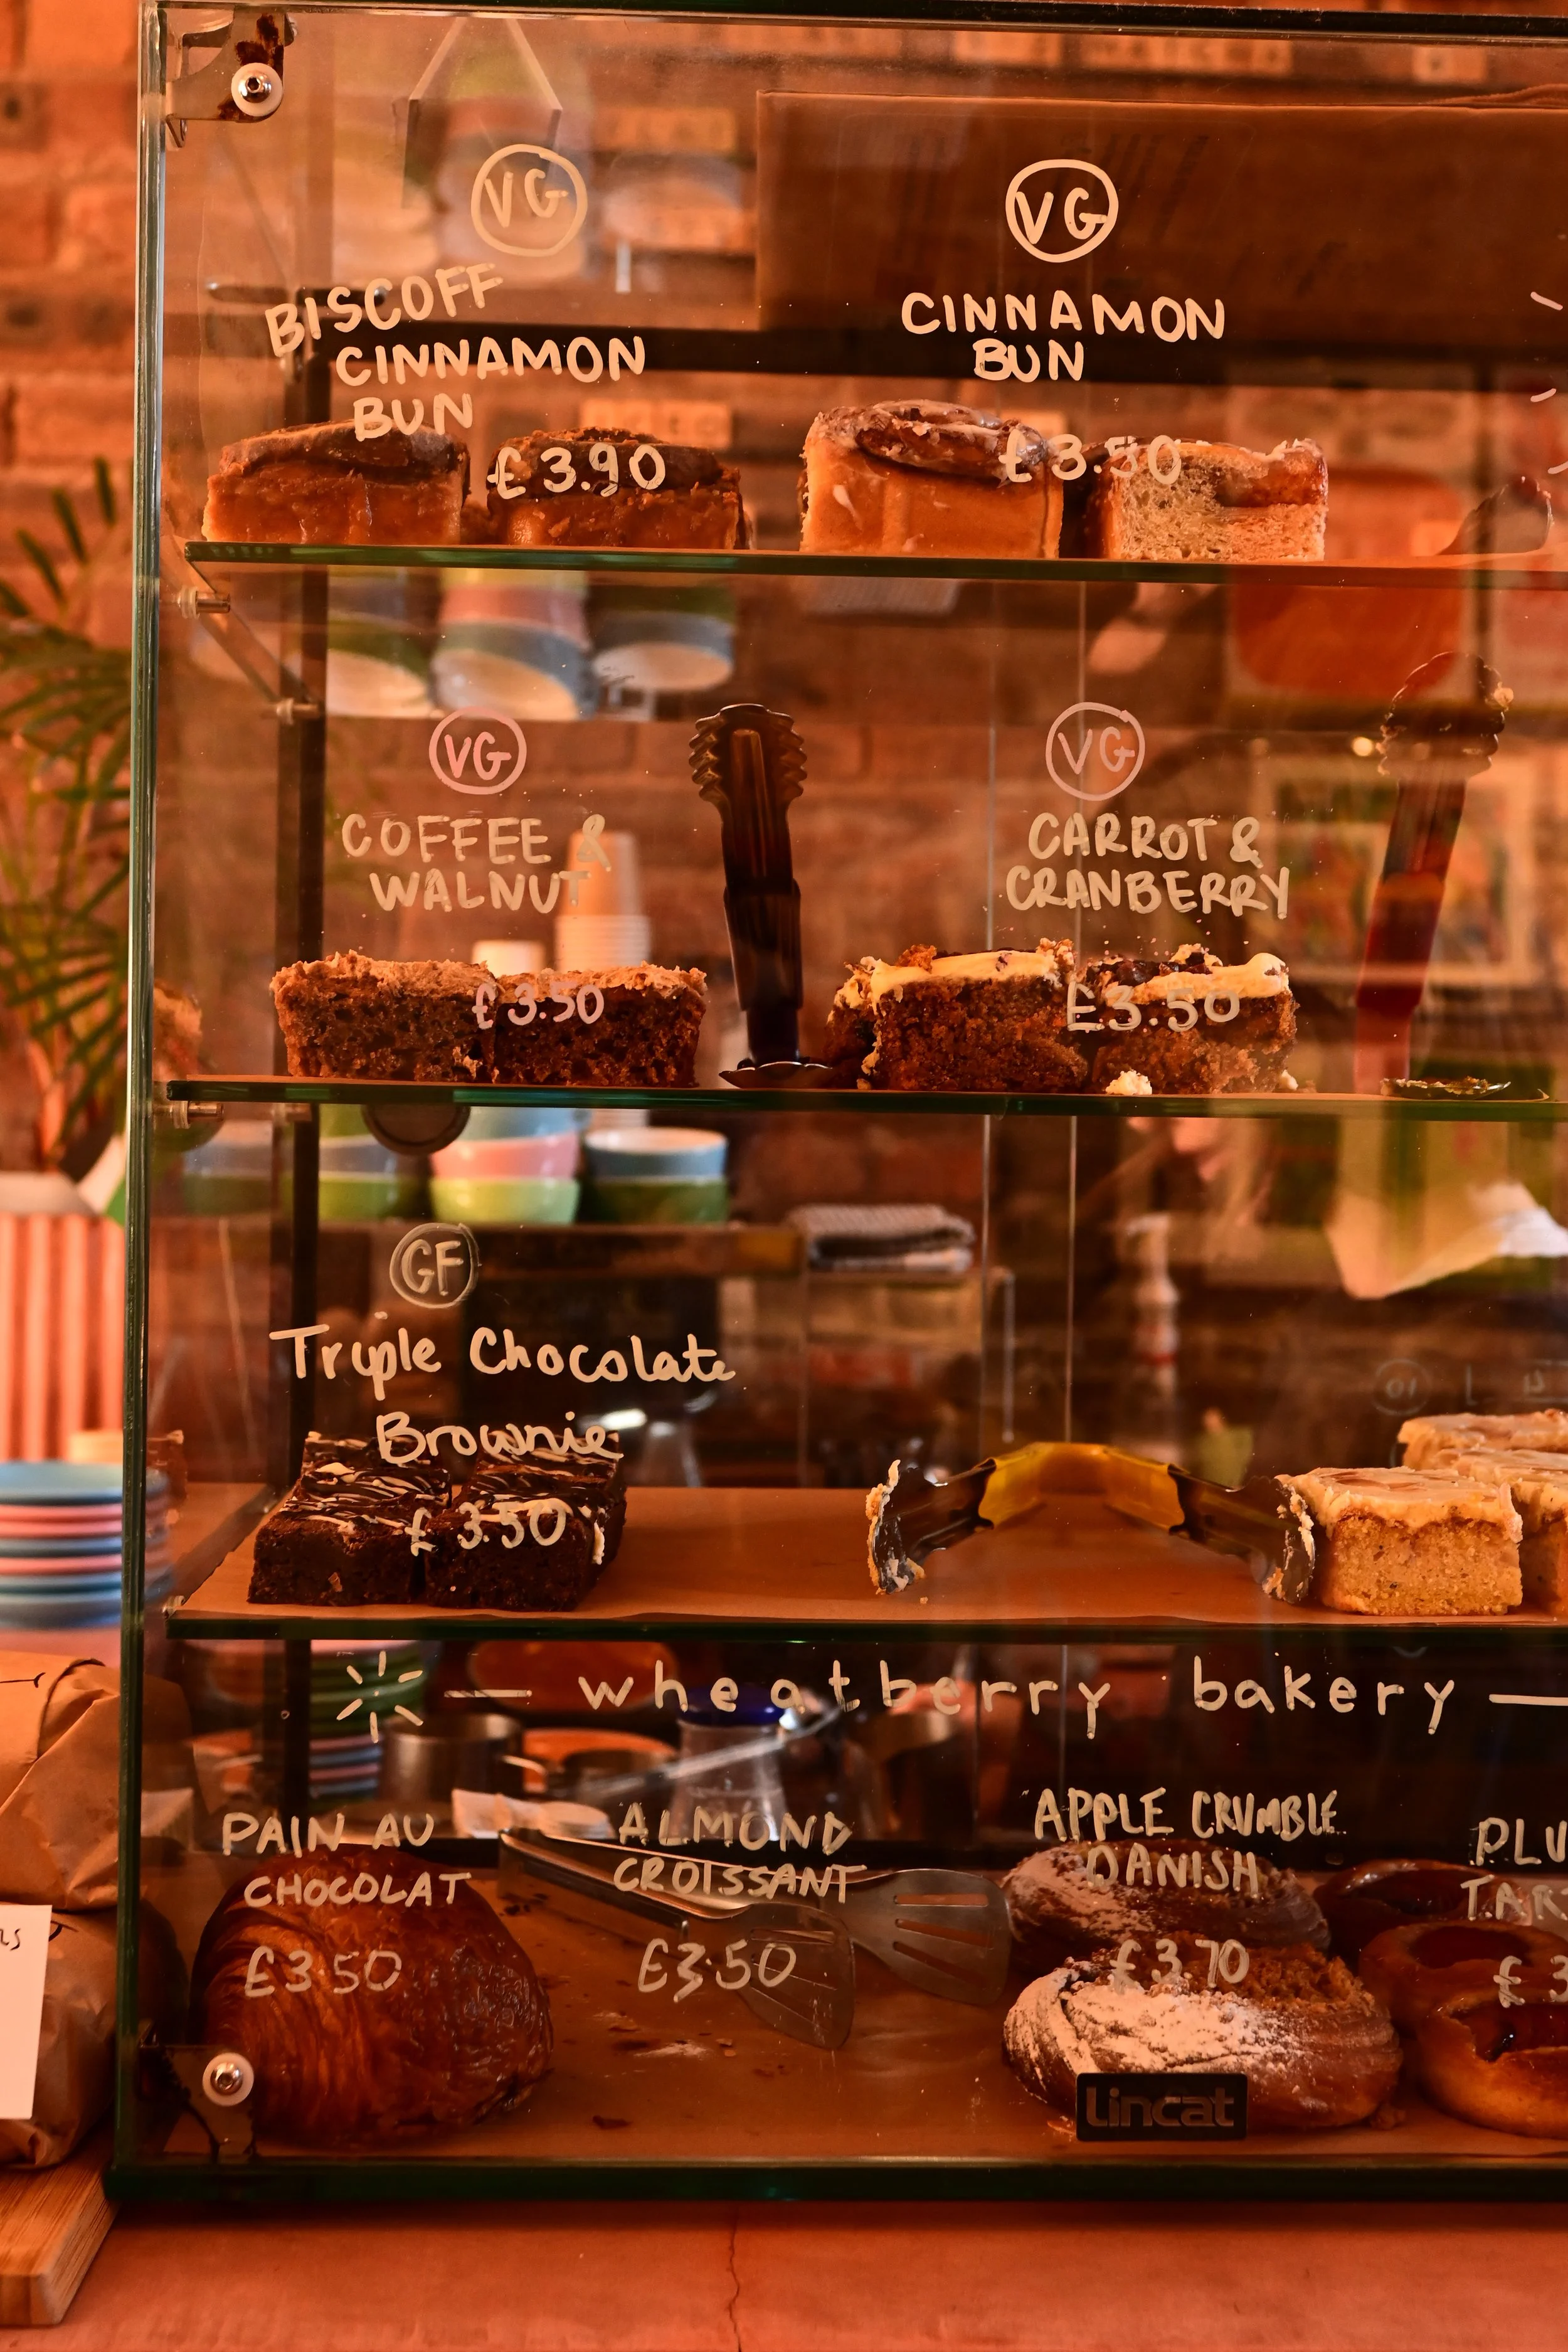 VG
BISCOFF
CINNAMON
BUN
£3.90
VG
CINNAMON
BUN
£3.50
VG
COFFEE &
WALNUT
£3.50
VG
CARROT &
CRANBERRY
£3.50
GF
Triple Chocolate
Brownie
£3.50
— wheatberry bakery —
PAIN AU
CHOCOLAT
£3.50
ALMOND
CROISSANT
£3.50
APPLE CRUMBLE
DANISH
£3.70
PLU
TAR
£3
Lincat